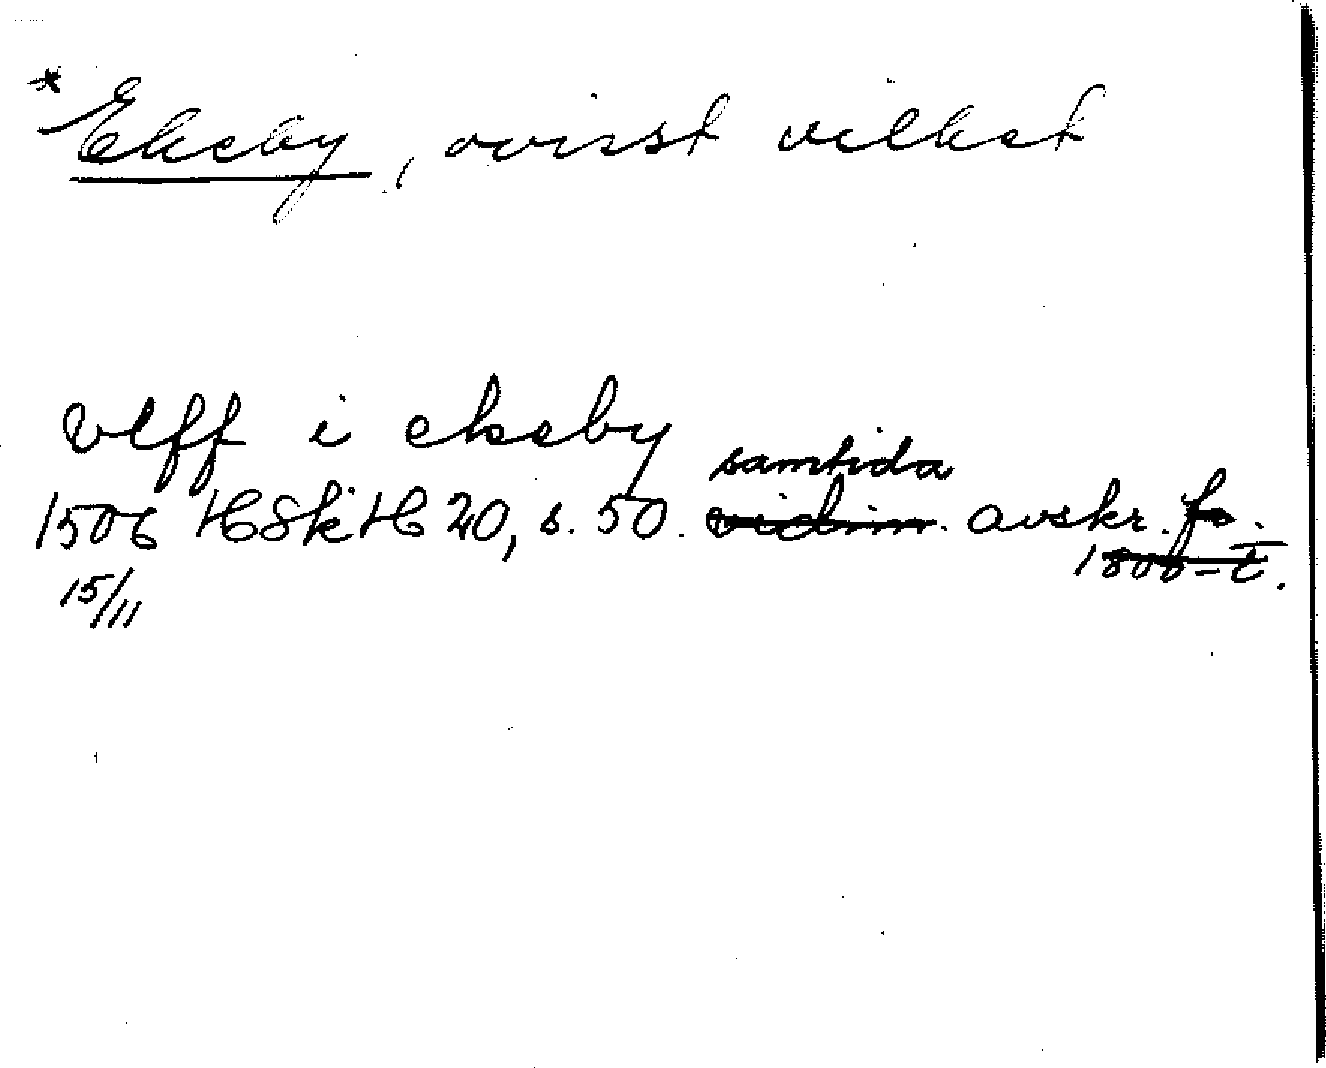 * Ekeby, ovisst vilket
vlff i ekeby
samtida
1506 HSkH 20, s. 50. vidim. avskr. fr.
15/11 1800-t.